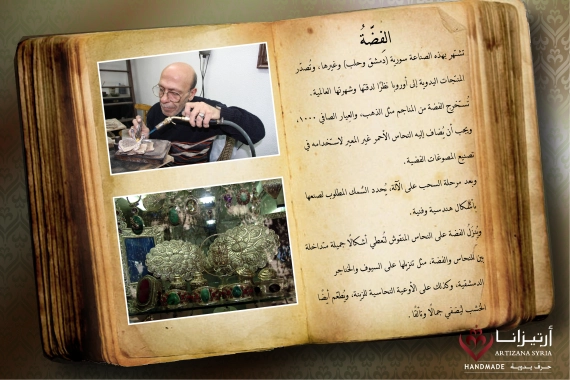 الفِضّةُ
تشتهر بهذه الصناعة سورية (دمشق وحلب) وغيرها، وتُصدّر
المنتجات اليدوية إلى أوروبا نظرًا لدقتها وشهرتها العالمية.
تُستخرج الفضة من المناجم مثل الذهب، والعيار الصافي ١٠٠٠،
ويجب أن يُضاف إليه النحاس الأحمر غير المعير لاستخدامه في
تصنيع المصوغات الفضية.
وبعد مرحلة السحب على الآلة، يُحدد السُمك المطلوب لصنعها
بأشكال هندسية وفنية.
وتنزّل الفضة على النحاس المنقوش لتُعطي أشكالًا جميلة متداخلة
بين النحاس والفضة، مثل تنزيلها على السيوف والخناجر
الدمشقية، وكذلك على الأوعية النحاسية للزينة، ويُطعّم أيضًا
الخشب ليُضفي جمالًا وتألقًا.
أرتيزانا
ARTIZANA SYRIA
HANDMADE حرف يدوية